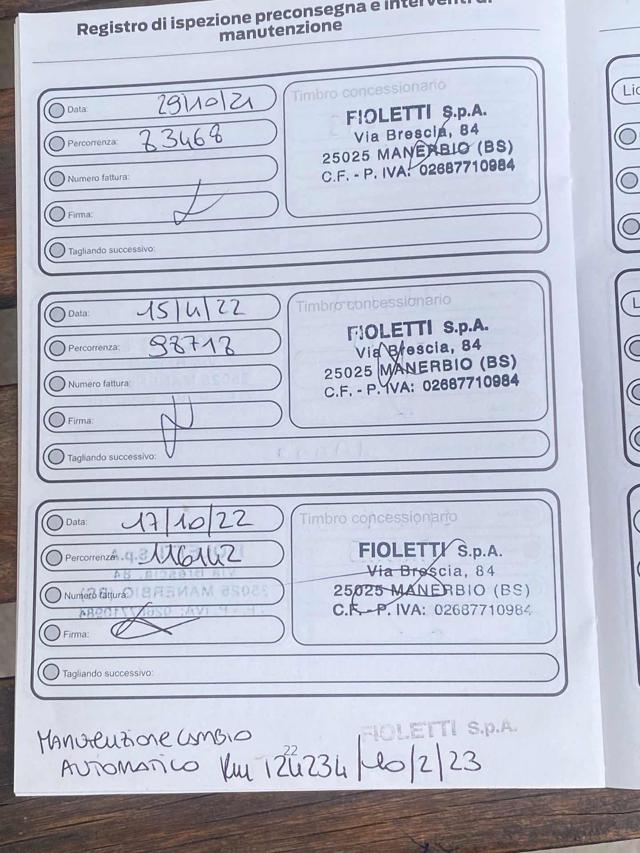 Registro di ispezione preconsegna e interventi di
manutenzione
Data: 29/10/21
Percorrenza: 83468
Numero fattura:
Firma:
Tagliando successivo:
Timbro concessionario
FIOLETTI S.p.A.
Via Brescia, 84
25025 MANERBIO (BS)
C.F. - P. IVA: 02687710984
Data: 15/4/22
Percorrenza: 98718
Numero fattura:
Firma:
Tagliando successivo:
Timbro concessionario
FIOLETTI S.p.A.
Via Brescia, 84
25025 MANERBIO (BS)
C.F. - P. IVA: 02687710984
Data: 17/10/22
Percorrenza: 116142
Numero fattura:
Firma:
Tagliando successivo:
Timbro concessionario
FIOLETTI S.p.A.
Via Brescia, 84
25025 MANERBIO (BS)
C.F. - P. IVA: 02687710984
MANUTENZIONE CAMBIO
FIOLETTI S.p.A.
AUTOMATICO Km 124234 /10/2/23
22